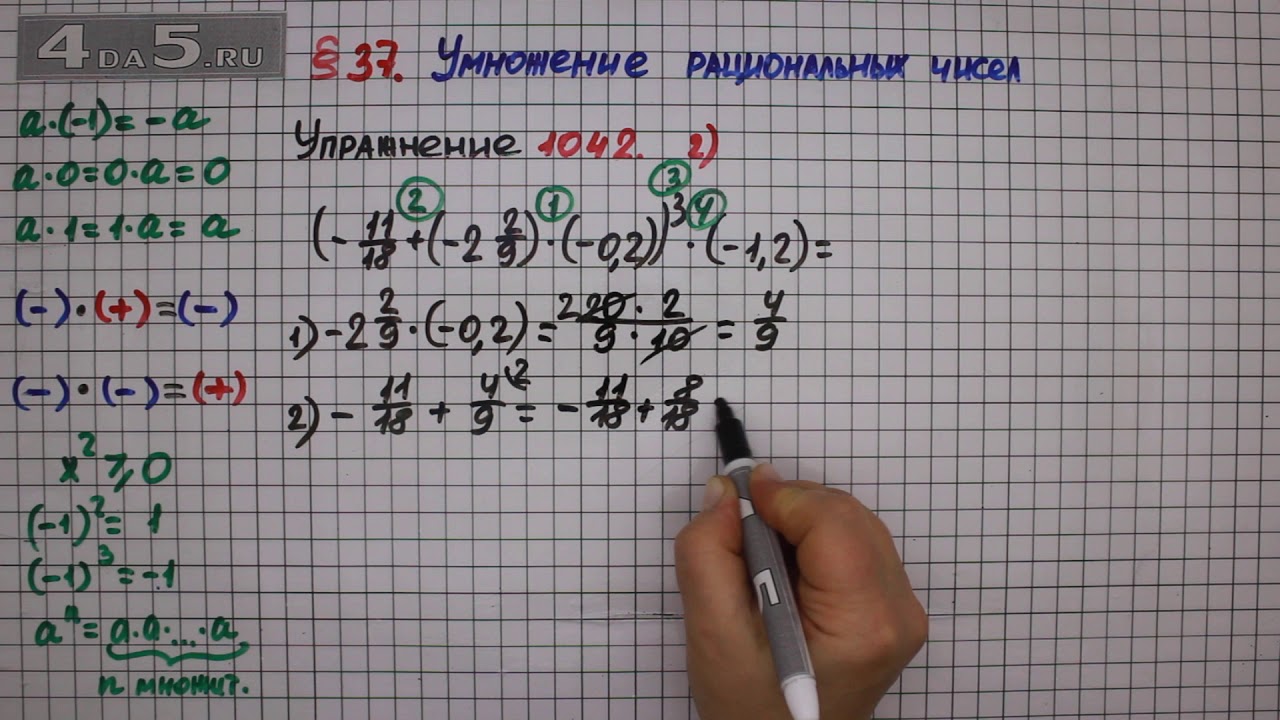 4DA5.RU
§ 37. Умножение рациональных чисел
a·(-1)=-a
a·0=0·a=0
a·1=1·a=a
(-)·(+)=(-)
(-)·(-)=(+)
x²⩾0
(-1)²=1
(-1)³=-1
aⁿ=a·a·...·a
n множит.
Упражнение 1042. 2)
② ① ③ ④
(-11/18+(-2 2/9)·(-0,2))³·(-1,2)=
1) -2 2/9·(-0,2)=220·2/9·10=4/9
2) -11/18+4/9\2=-11/18+8/18